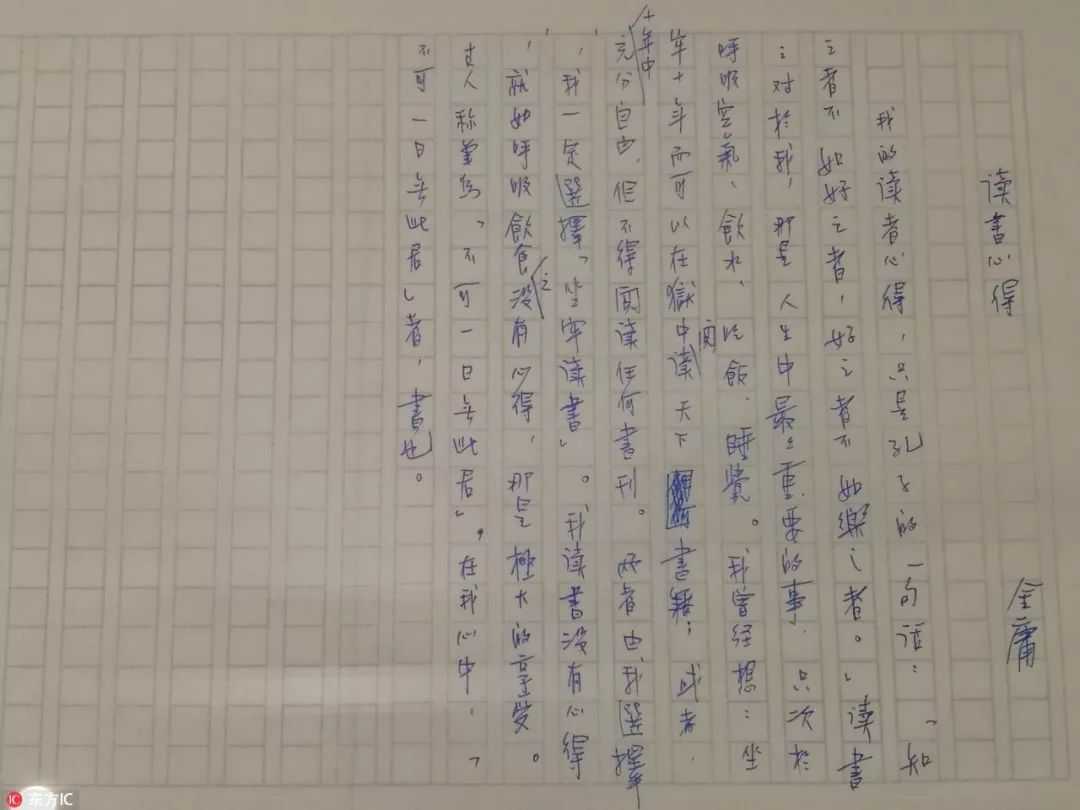 读書心得
金庸
我的读者心得，只是孔子的一句话：「知
之者不如好之者，好之者不如樂之者。」读書
之对於我，那是人生中最重要的事，只次於
呼吸空氣、飲水、吃飯、睡覺。我曾经想：坐
牢十年而可以在獄中阅读天下書籍；或者，
十年中充分自由，但不得阅读任何書刊。两者由我選擇
，我一定選擇「坐牢读書」。我读書没有心得
，就如呼吸飲食之没有心得，那是極大的享受。
古人称竹为「不可一日無此君」。在我心中，「
不可一日無此君」者，書也。
东方IC